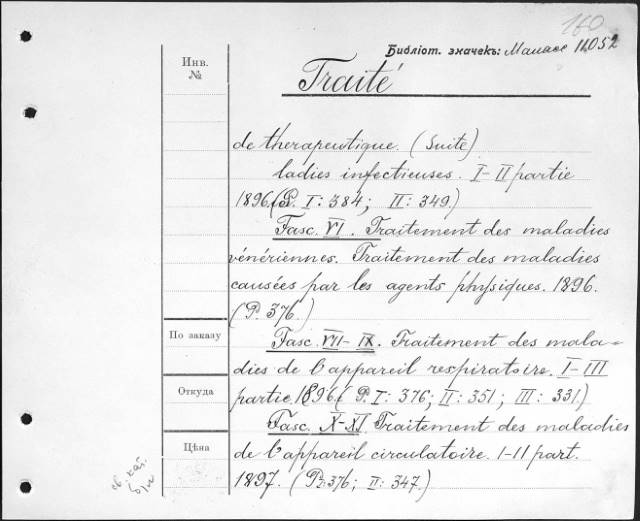 160
Библіот. значекъ: Манасс 11052
Инв.
№
Traité
de therapeutique. (Suite)
ladies infectieuses. I-II partie
1896. (P. I: 384; II: 349.)
Fasc. VI. Traitement des maladies
vénériennes. Traitement des maladies
causées par les agents physiques. 1896.
(P. 376.)
По заказу
Fasc. VII-IX. Traitement des mala=
dies de l'appareil respiratoire. I-III
Откуда
partie. 1896. (P. I: 376; II: 351; III: 331.)
Fasc. X-XI. Traitement des maladies
Цѣна
de l'appareil circulatoire. I-II part.
1897. (P. I: 376; II: 347.)